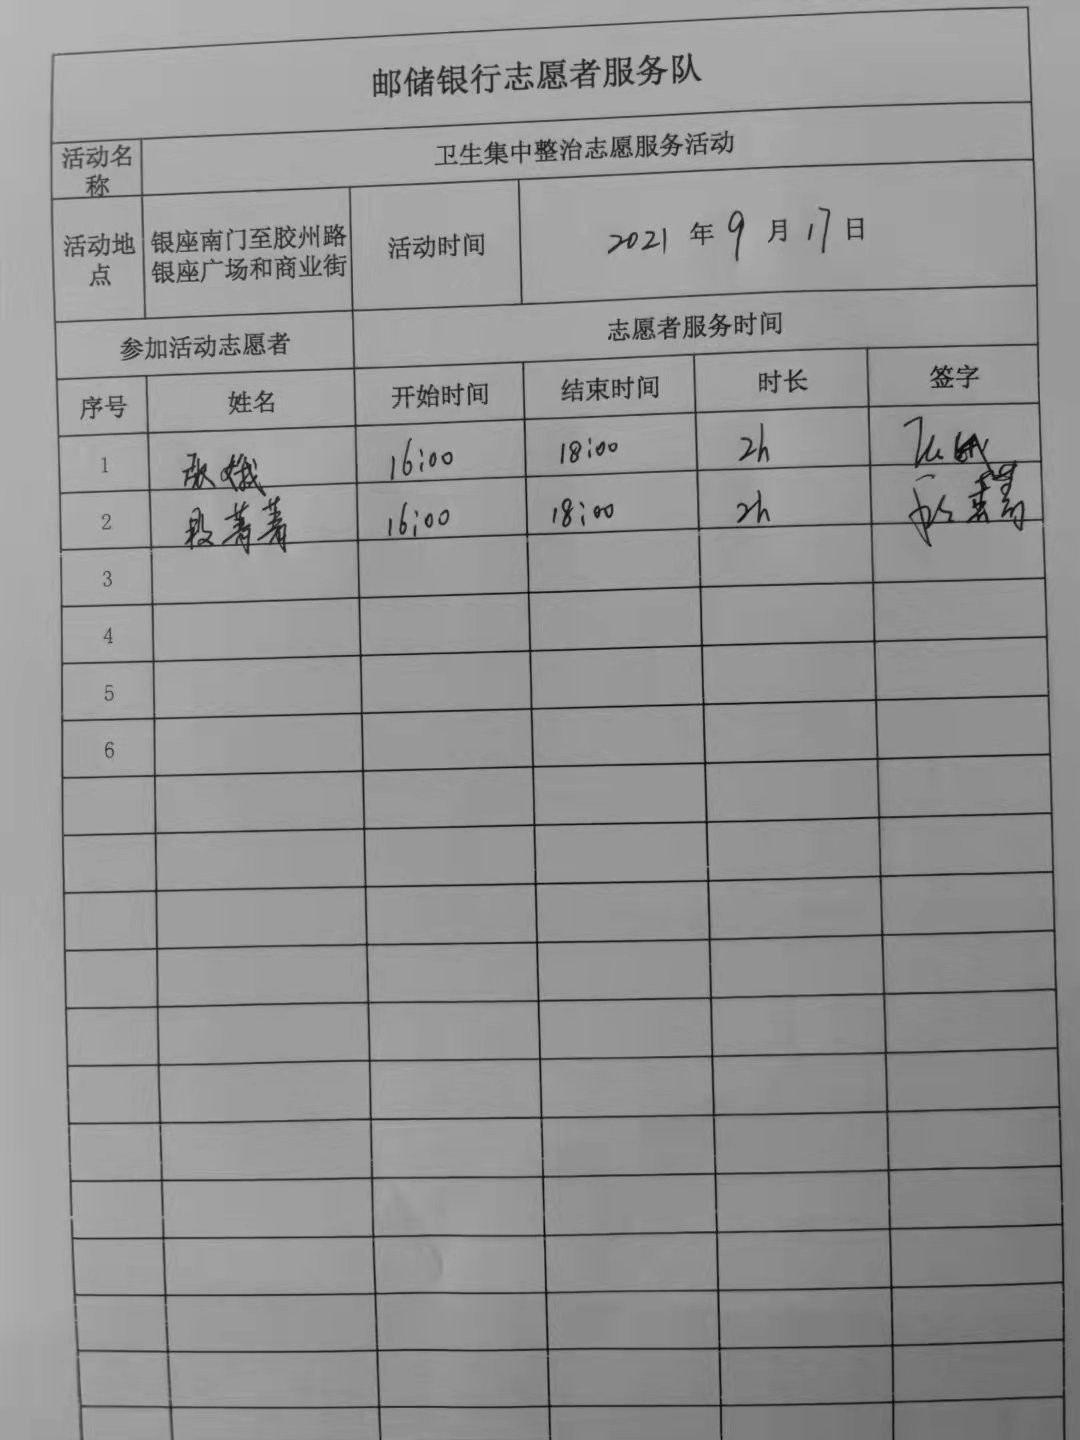 邮储银行志愿者服务队
活动名
称
卫生集中整治志愿服务活动
活动地
点
银座南门至胶州路
银座广场和商业街
活动时间
2021 年 9 月 17 日
参加活动志愿者
志愿者服务时间
序号 姓名 开始时间 结束时间 时长 签字
1 16:00 18:00 2h
2 段菁菁 16:00 18:00 2h
3
4
5
6